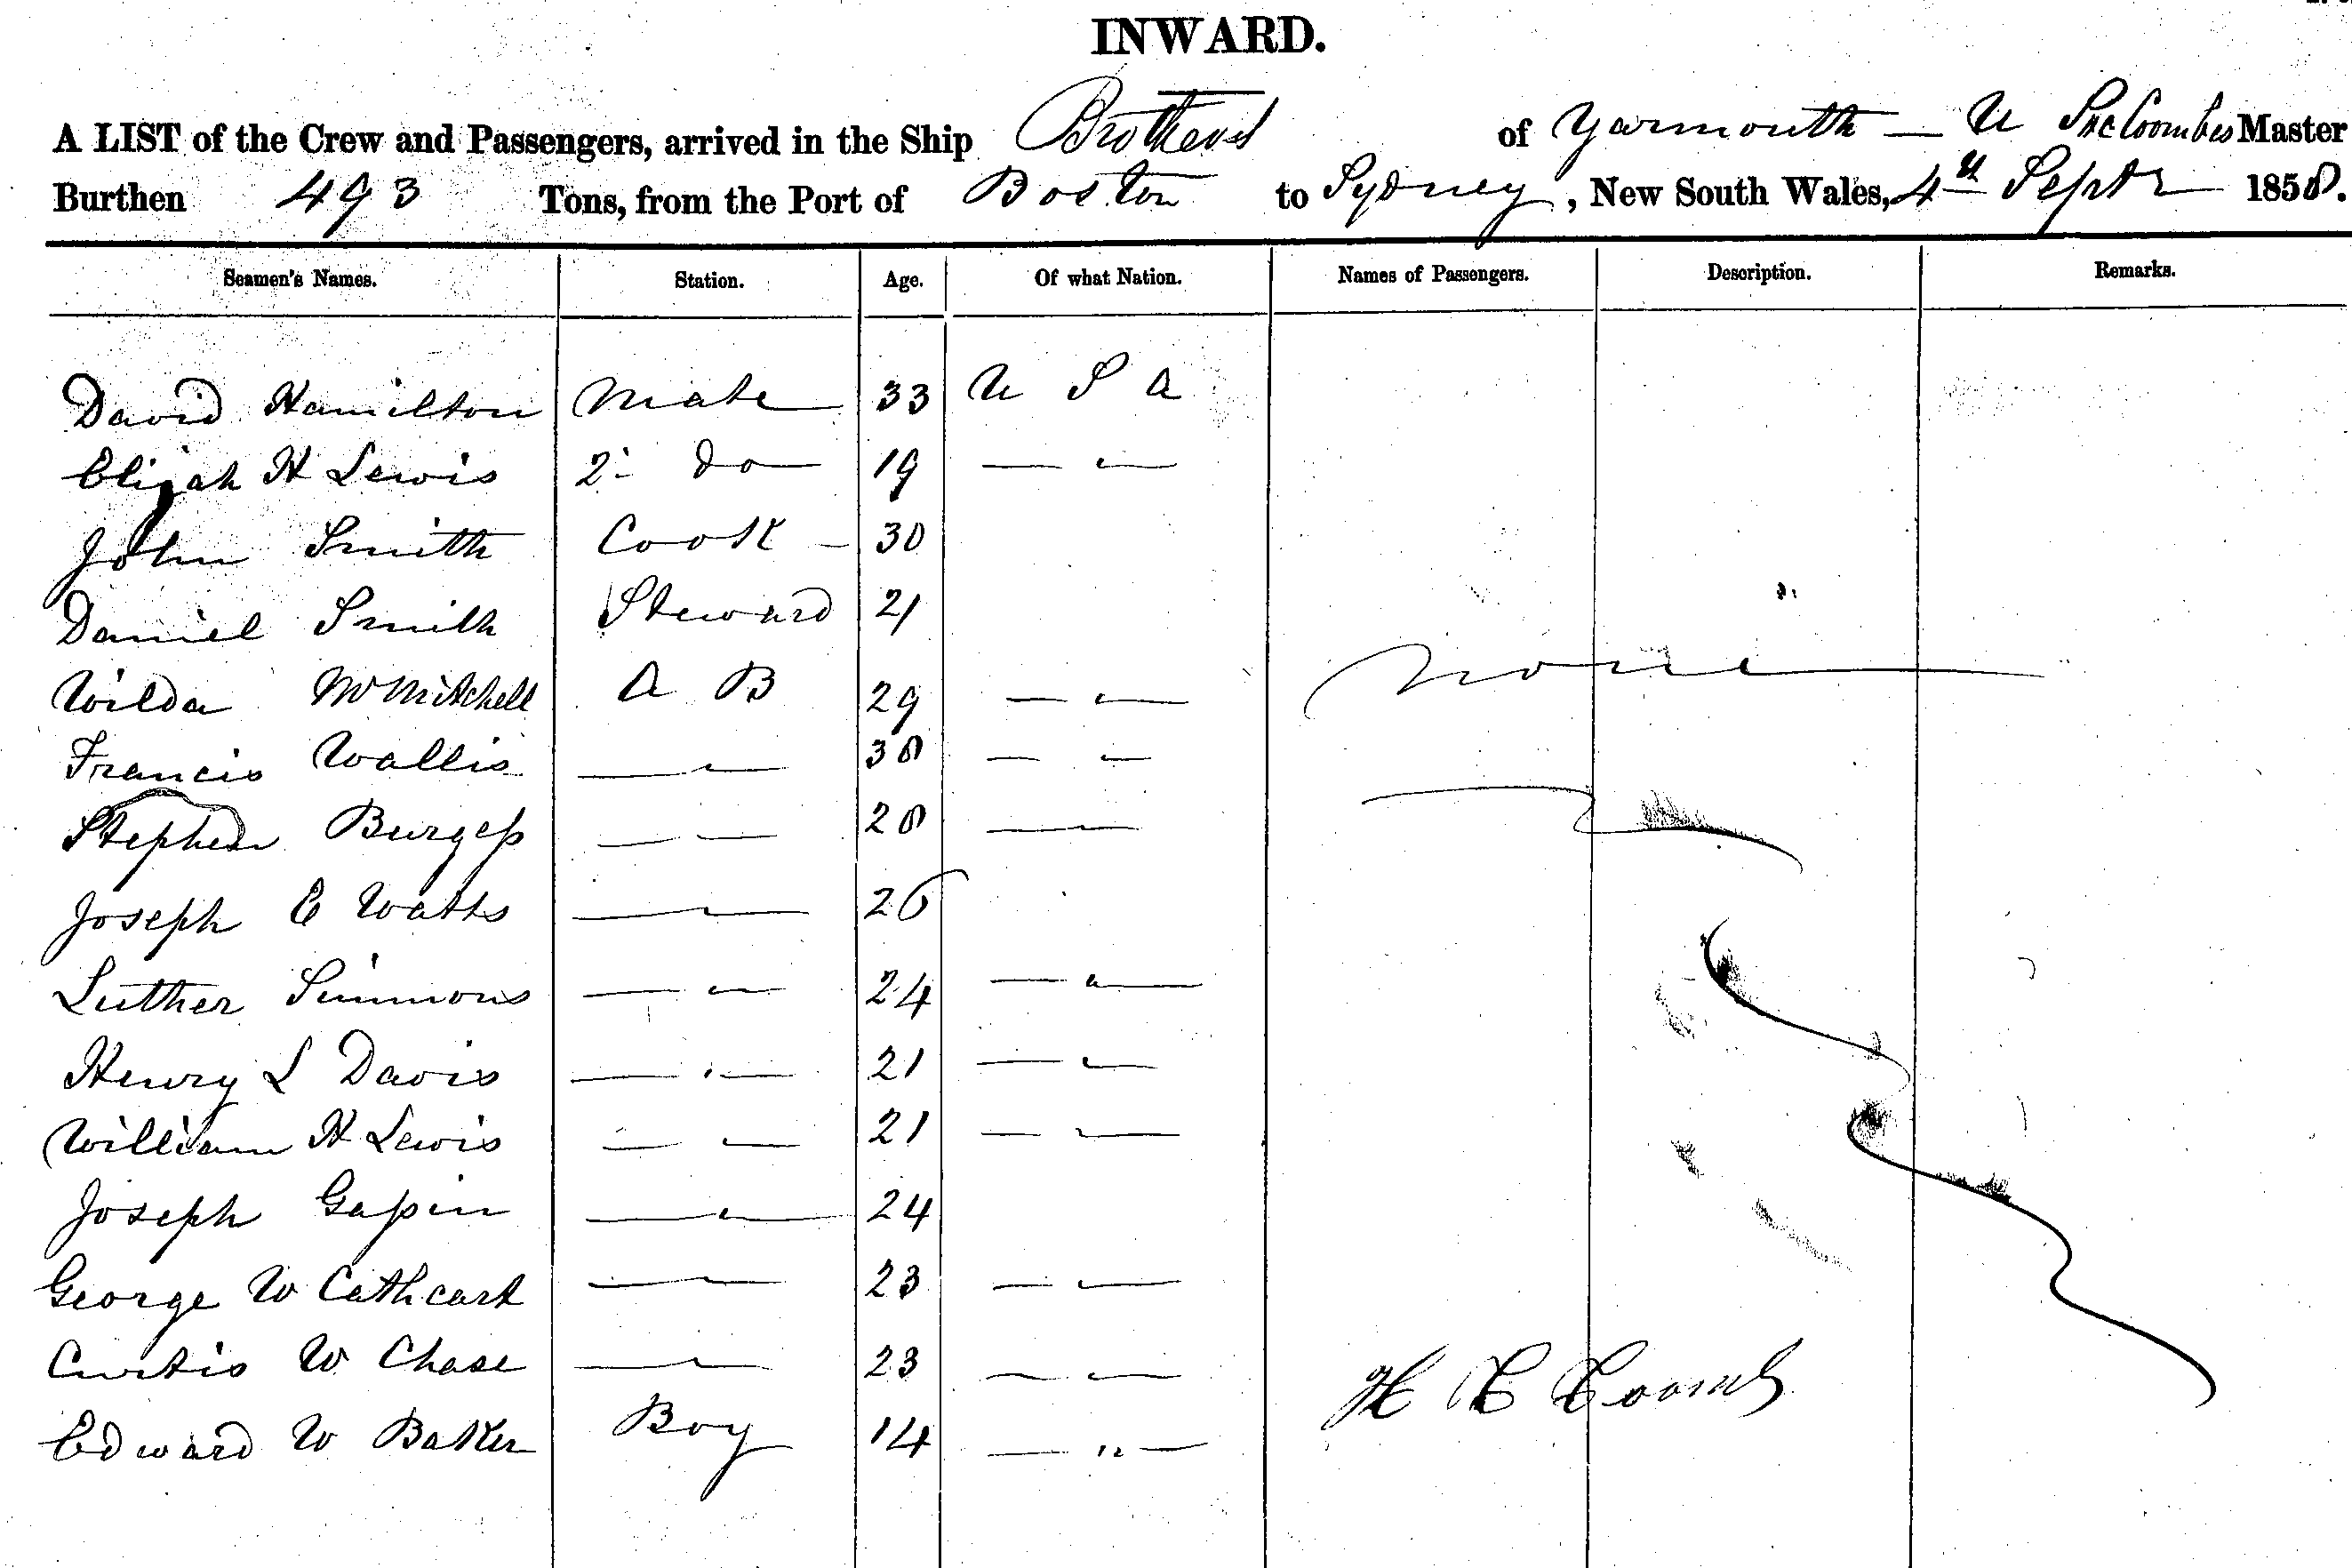 INWARD.
A LIST of the Crew and Passengers, arrived in the Ship Brothers of Yarmouth — Master
Burthen 493 Tons, from the Port of Boston to Sydney, New South Wales, 4th Septr 1858.
Seamen's Names. Station. Age. Of what Nation. Names of Passengers. Description. Remarks.
David Hamilton Mate 33 U S A
Elijah H Lewis 2d do 19 — " —
John Smith Cook — 30
Daniel Smith Steward 21
Wilda McMitchell A B 29 — " —
none
Francis Wallis — " — 38 — " —
Stephen Burgess — — 28 — —
Joseph E Watts — " — 26
Luther Simmons — " — 24 — " —
Henry L Davis — " — 21 — " —
William H Lewis — — 21 — " —
Joseph — " — 24
George W Cathcart — " — 23 — " —
Curtis W Chase — " — 23 — " —
H C Coombs
Edward W Baker Boy 14 — " —